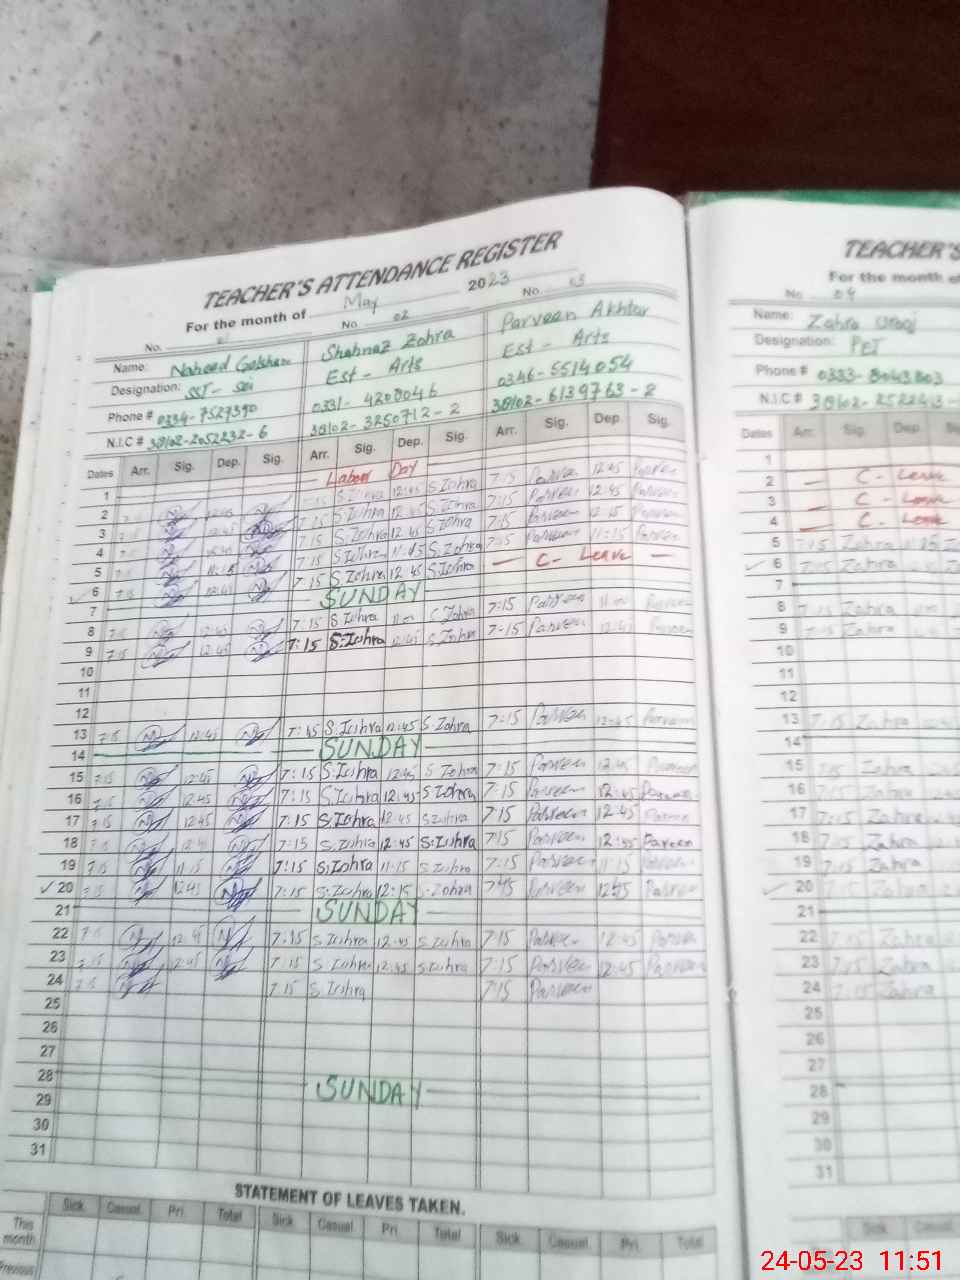 TEACHER'S ATTENDANCE REGISTER
For the month of May 2023
No. No. 02 No. 03
Name: Naheed Shahnaz Zohra Parveen Akhtar
Designation: SST - Sci Est - Arts Est - Arts
Phone # 0334-7529390 0331-4200046 0346-5514054
N.I.C # 38102-2052232-6 38102-3250712-2 38102-6139763-2
Dates Arr. Sig. Dep. Sig. Arr. Sig. Dep. Sig. Arr. Sig. Dep. Sig.
1 Labour Day
2 S.Zohra 12:45 S.Zohra 7:15 Parveen 12:45 Parveen
3 7:15 S.Zohra 12:45 S.Zohra 7:15 Parveen 12:45 Parveen
4 7:15 S.Zohra 12:45 S.Zohra 7:15 Parveen 12:15 Parveen
5 7:15 S.Zohra 11:15 S.Zohra 7:15 Parveen 11:15 Parveen
6 7:15 S.Zohra 12:45 S.Zohra — C- Leave —
7 SUNDAY
8 7:15 7:15 S.Zohra S.Zohra 7:15 Parveen Parveen
9 7:15 12:45 7:15 S.Zohra 12:45 S.Zohra 7:15 Parveen 12:45 Parveen
10
11
12
13 7:15 12:45 7:15 S.Zohra 12:45 S.Zohra 7:15 Parveen 12:45 Parveen
14 SUNDAY
15 7:15 12:45 7:15 S.Zohra 12:45 S.Zohra 7:15 Parveen 12:45 Parveen
16 7:15 12:45 7:15 S.Zohra 12:45 S.Zohra 7:15 Parveen 12:45 Parveen
17 7:15 12:45 7:15 S.Zohra 12:45 S.Zohra 7:15 Parveen 12:45 Parveen
18 7:15 12:45 7:15 S.Zohra 12:45 S.Zohra 7:15 Parveen 12:45 Parveen
19 7:15 11:15 7:15 S.Zohra 11:15 S.Zohra 7:15 Parveen 11:15 Parveen
20 7:15 12:45 7:15 S.Zohra 12:15 S.Zohra 7:45 Parveen 12:45 Parveen
21 SUNDAY
22 7:15 12:45 7:15 S.Zohra 12:45 S.Zohra 7:15 Parveen 12:45 Parveen
23 7:15 12:45 7:15 S.Zohra 12:45 S.Zohra 7:15 Parveen 12:45 Parveen
24 7:15 7:15 S.Zohra 7:15 Parveen
25
26
27
28 SUNDAY
29
30
31
STATEMENT OF LEAVES TAKEN.
Sick. Casual. Pri. Total Sick. Casual. Pri. Total Sick. Casual. Pri. Total
This month
Previous
TEACHER'S
For the month of
No 04
Name: Zahra
Designation: PET
Phone # 0333-8043803
N.I.C #
Dates Arr. Sig. Dep.
1
2 — C - Leave
3 — C - Leave
4 — C - Leave
5 7:15 Zahra
6 7:15 Zahra
7
8 7:15 Zahra
9 7:15 Zahra
10
11
12
13 7:15 Zahra
14
15 7:15 Zahra
16 7:15 Zahra
17 7:15 Zahra
18 7:15 Zahra
19 7:15 Zahra
20 7:15 Zahra
21
22 7:15 Zahra
23 7:15 Zahra
24 7:15 Zahra
25
26
27
28
29
30
31
Sick. Casual.
24-05-23 11:51